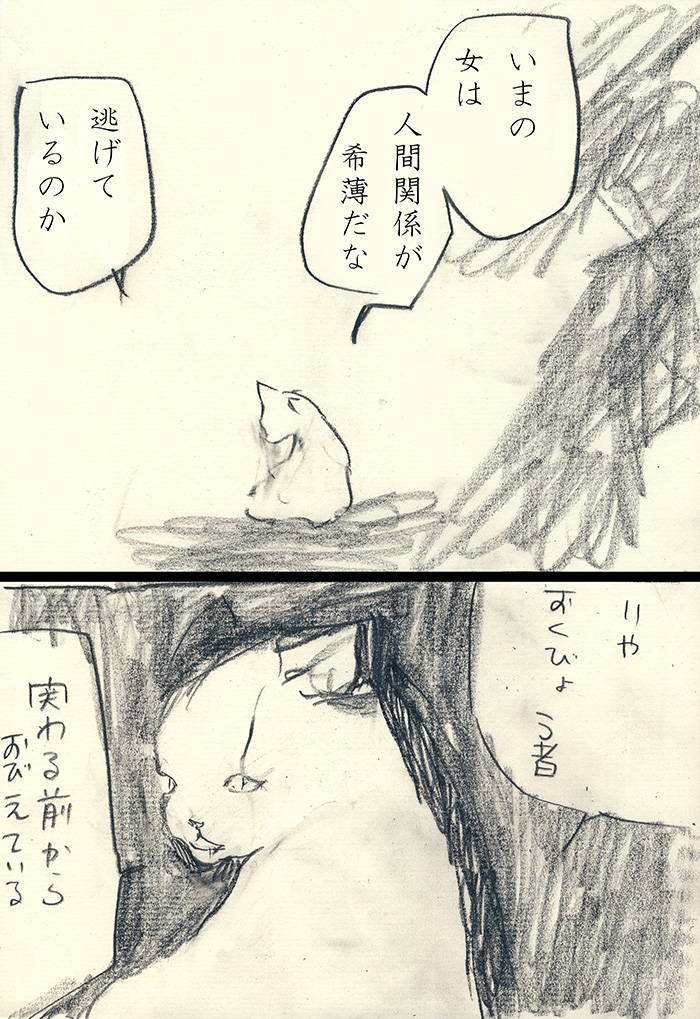 いまの
女は
人間関係が
希薄だな
逃げて
いるのか
いや
おくびょう者
関わる前から
おびえている